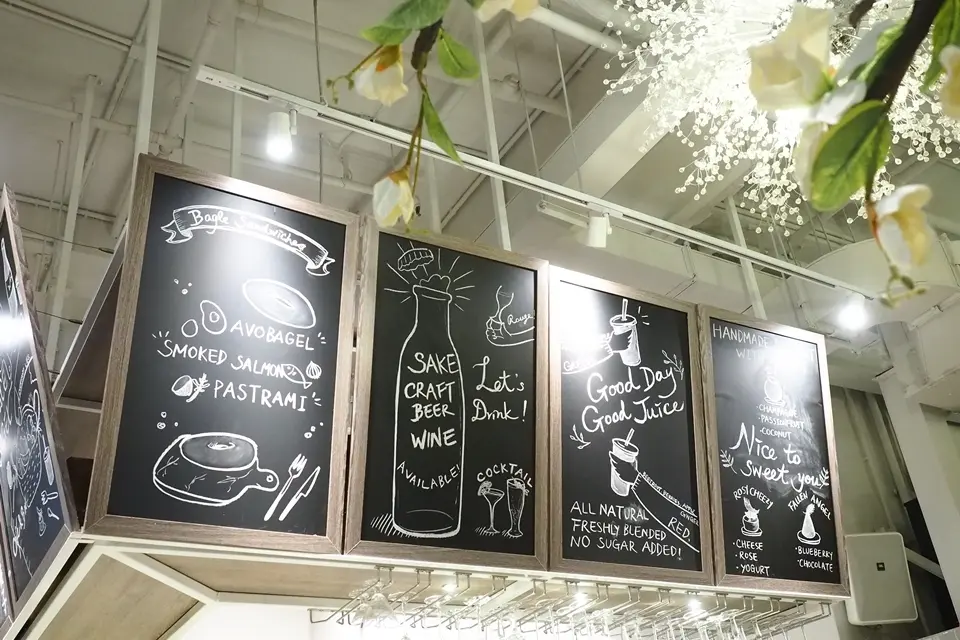 Bagle Sandwiches
AVOBAGEL
SMOKED SALMON
PASTRAMI
SAKE
CRAFT
BEER
WINE
AVAILABLE!
Rouge
Let's
Drink!
COCKTAIL
Good Day
Good Juice
RED
ALL NATURAL
FRESHLY BLENDED
NO SUGAR ADDED!
HANDMADE
CHAMPAGNE
PASSIONFRUIT
COCONUT
Nice to
sweet you
ROSY CHEEKS
CHEESE
ROSE
YOGURT
FALLEN ANGEL
BLUEBERRY
CHOCOLATE